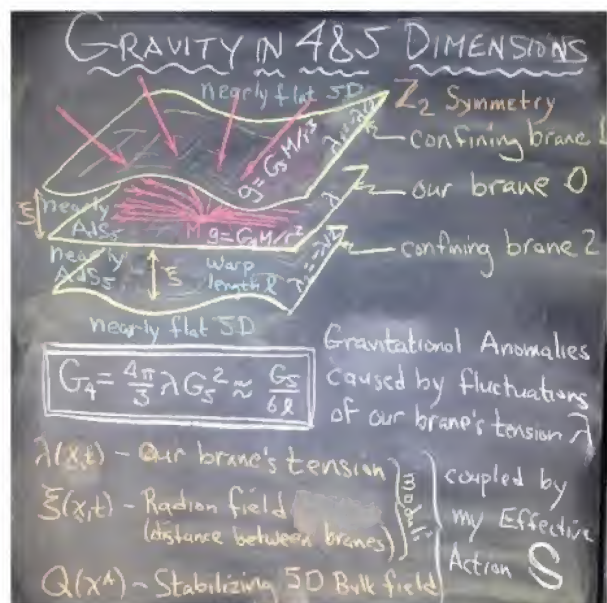 GRAVITY IN 4&5 DIMENSIONS
nearly flat 5D
Z₂ Symmetry
confining brane 1
g = G₅M/r³
our brane 0
ξ
nearly
AdS₅
M
g = G₄M/r²
λ
confining brane 2
nearly
AdS₅
ξ
warp
length ℓ
nearly flat 5D
G₄ = 4π/3 λ G₅² ≈ G₅/6ℓ
Gravitational Anomalies
caused by fluctuations
of our brane's tension λ
λ(x,t) – Our brane's tension
ξ(x,t) – Radion field
(distance between branes)
Moduli
Q(xᴬ) – Stabilizing 5D Bulk field
coupled by
my Effective
Action S